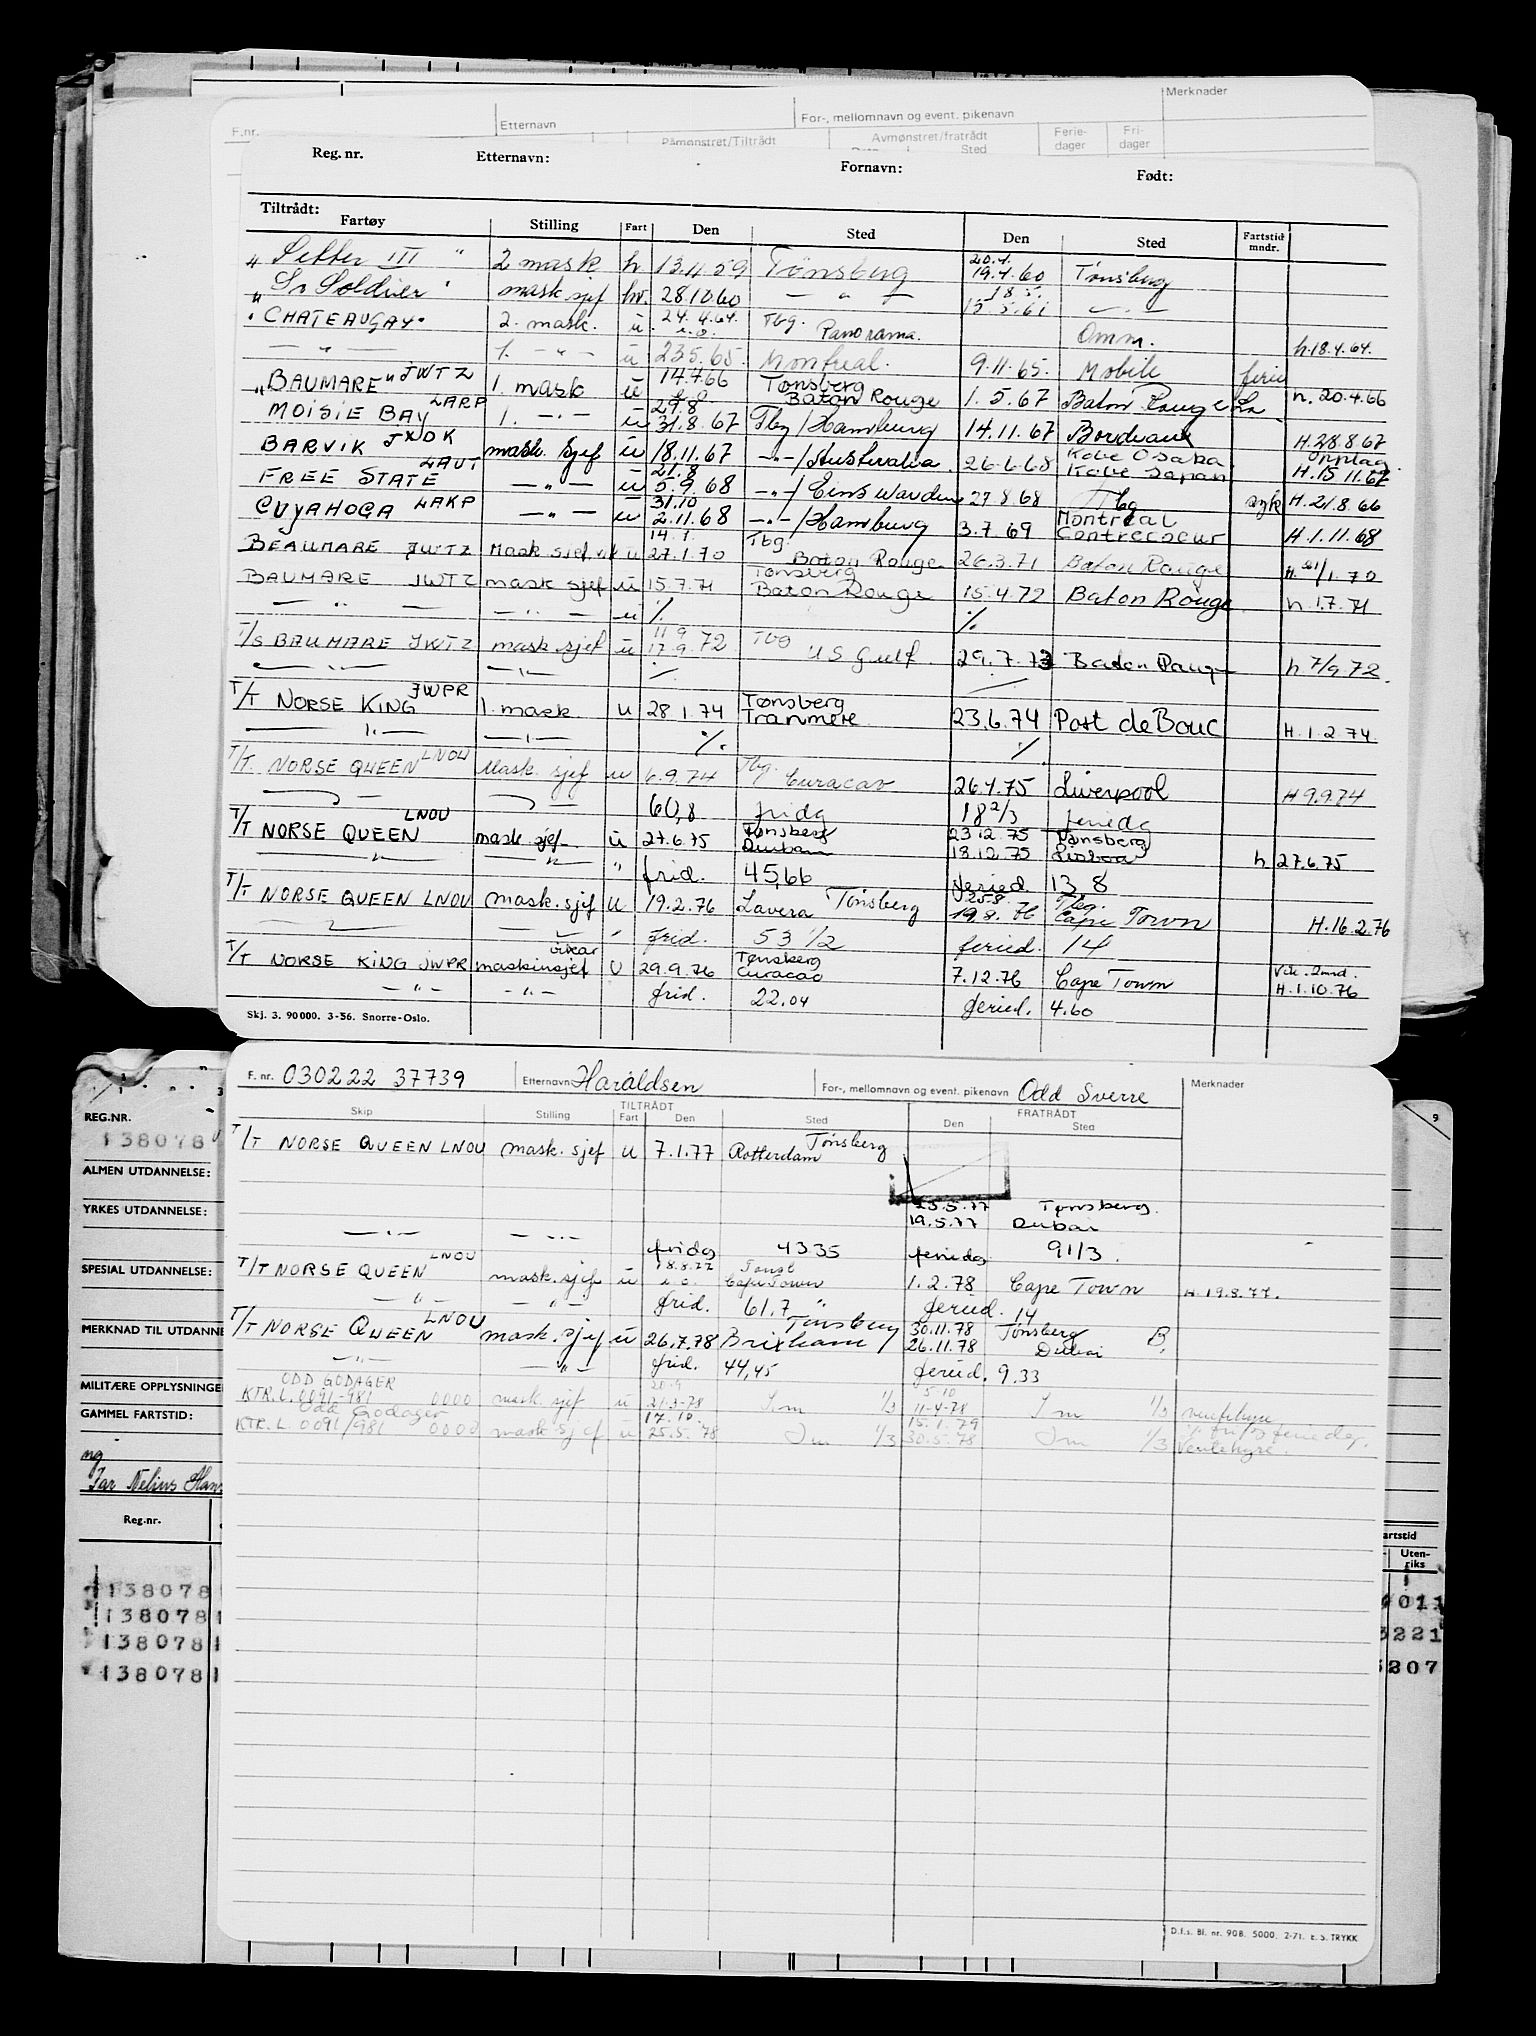 Merknader
F.nr. Etternavn For-, mellomnavn og event. pikenavn
Påmønstret/Tiltrådt Avmønstret/fratrådt Ferie- Fri-
Sted dager dager
Reg. nr. Etternavn: Fornavn: Født:
Tiltrådt:
Fartøy Stilling Fart Den Sted Den Sted Fartstid mndr.
20.4.
„ Setter III " 2 mask h 13.11.59 Tønsberg 19.4.60 Tønsberg
18.5.
" Sv Soldier " mask sjef hv. 28.10.60 — " — 15.5.61 — . —
"CHATEAUGAY" 2. mask. u. 24.4.64. Tbg. Panorama. Omm. h.18.4.64.
— " — 1. — " — u 23.5.65. Montreal. 9.11.65. Mobile ferie
„BAUMARE" JWTZ 1. mask u 14.4.66 Tønsberg Baton Rouge 1.5.67 Baton Rouge La h. 20.4.66
MOISIE BAY LARP 1. — . — u 29.8 31.8.67 Tbg/Hamburg 14.11.67 Bordeaux H.28.8.67
BARVIK JXDK mask. sjef u 18.11.67 — " —/Australia 26.6.68 Kobe Osaka Kobe Japan opplag. H.15.11.67
FREE STATE LAUT — " — u 21.8 5.9.68 — " —/ 27.8.68 Tbg syk H.21.8.66
CUYAHOGA LAKP — " — u 31.10 2.11.68 — " —/Hamburg 3.7.69 Montreal Contrecoeur H.1.11.68
BEAUMARE JWTZ Mask sjef vik u 14.1. 27.1.70 Tbg. Baton Rouge 26.3.71 Baton Rouge
BAUMARE JWTZ mask sjef u 15.7.71 Tønsberg Baton Rouge 15.4.72 Baton Rouge h 1.7.71
— " — — " — u ٪ ٪
T/S BAUMARE JWTZ mask. sjef u 11.9 17.9.72 Tbg US Gulf 29.7.73 Baton Rouge h 7/9.72.
— " — — " —
T/T NORSE KING JWPR 1. mask u 28.1.74 Tønsberg Tranmere 23.6.74 Port de Bouc H.1.2.74
— " — — " — ٪ ٪
T/T. NORSE QUEEN LNOU Mask. sjef u 6.9.74 Tbg. Curacao 26.4.75 Liverpool H 9.9.74
60,8 fridg 18 2/3 feriedg
T/T NORSE QUEEN LNOU mask. sjef u 27.6.75 Tønsberg Durban 23.12.75 Tønsberg 18.12.75 Lisboa h 27.6.75
— " — — " — " frid. 45,66 feried 13 8
T/T NORSE QUEEN LNOU mask. sjef u 19.2.76 Lavera Tønsberg 25.8. 19.8.76 Tbg. Cape Town H.16.2.76
— " frid. 53 1/2 feried. 14
T/T NORSE KING JWPR maskinsjef vikar U 29.9.76 Tønsberg Curacao 7.12.76 Cape Town H.1.10.76
— " — — " — frid. 22.04 feried. 4.60
Skj. 3. 90000. 3-56. Snorre-Oslo.
F. nr. 030222 37739 Etternavn Haraldsen For-, mellomnavn og event. pikenavn Odd Sverre Merknader
Skip Stilling TILTRÅDT Fart Den Sted FRATRÅDT Den Sted
T/T NORSE QUEEN LNOU mask. sjef u 7.1.77 Rotterdam Tønsberg
25.5.77 Tønsberg.
19.5.77 Dubai
— " — — . — fridg 43 35 feriedg 9 1/3.
T/T NORSE QUEEN LNOU mask. sjef u 18.8.77 Tønsb Cape Town 1.2.78 Cape Town H.19.8.77.
— " — — " — frid. 61.7 " feried. 14
T/T NORSE QUEEN LNOU mask. sjef u 26.7.78 Brixham / Tønsberg 30.11.78 26.11.78 Tønsberg Dubai B.
— " — — " — frid. 44,45 feried. 9.33
ODD GODAGER 20.9 5.10
KTR.L. 0091-981 0000 mask. sjef u 21.3.78 1/3 11-4-78 1/3 ventehyre
Odd Godager 17.10. 15.1.79
KTR.L. 0091/981 0000 mask. sjef u 25.5.78 1/3 30.5.78 1/3 Ventehyre
D.f.s. Bl. nr. 90B. 5000. 2-71. E.S. TRYKK
REG.NR.
138078
ALMEN UTDANNELSE:
YRKES UTDANNELSE:
SPESIAL UTDANNELSE:
MERKNAD TIL UTDANNE
MILITÆRE OPPLYSNINGE
GAMMEL FARTSTID:
ng
Far Nelius Hans
Reg.nr.
138078
138078
138078
138078
9
artstid
Uten-
riks
011
3221
5207